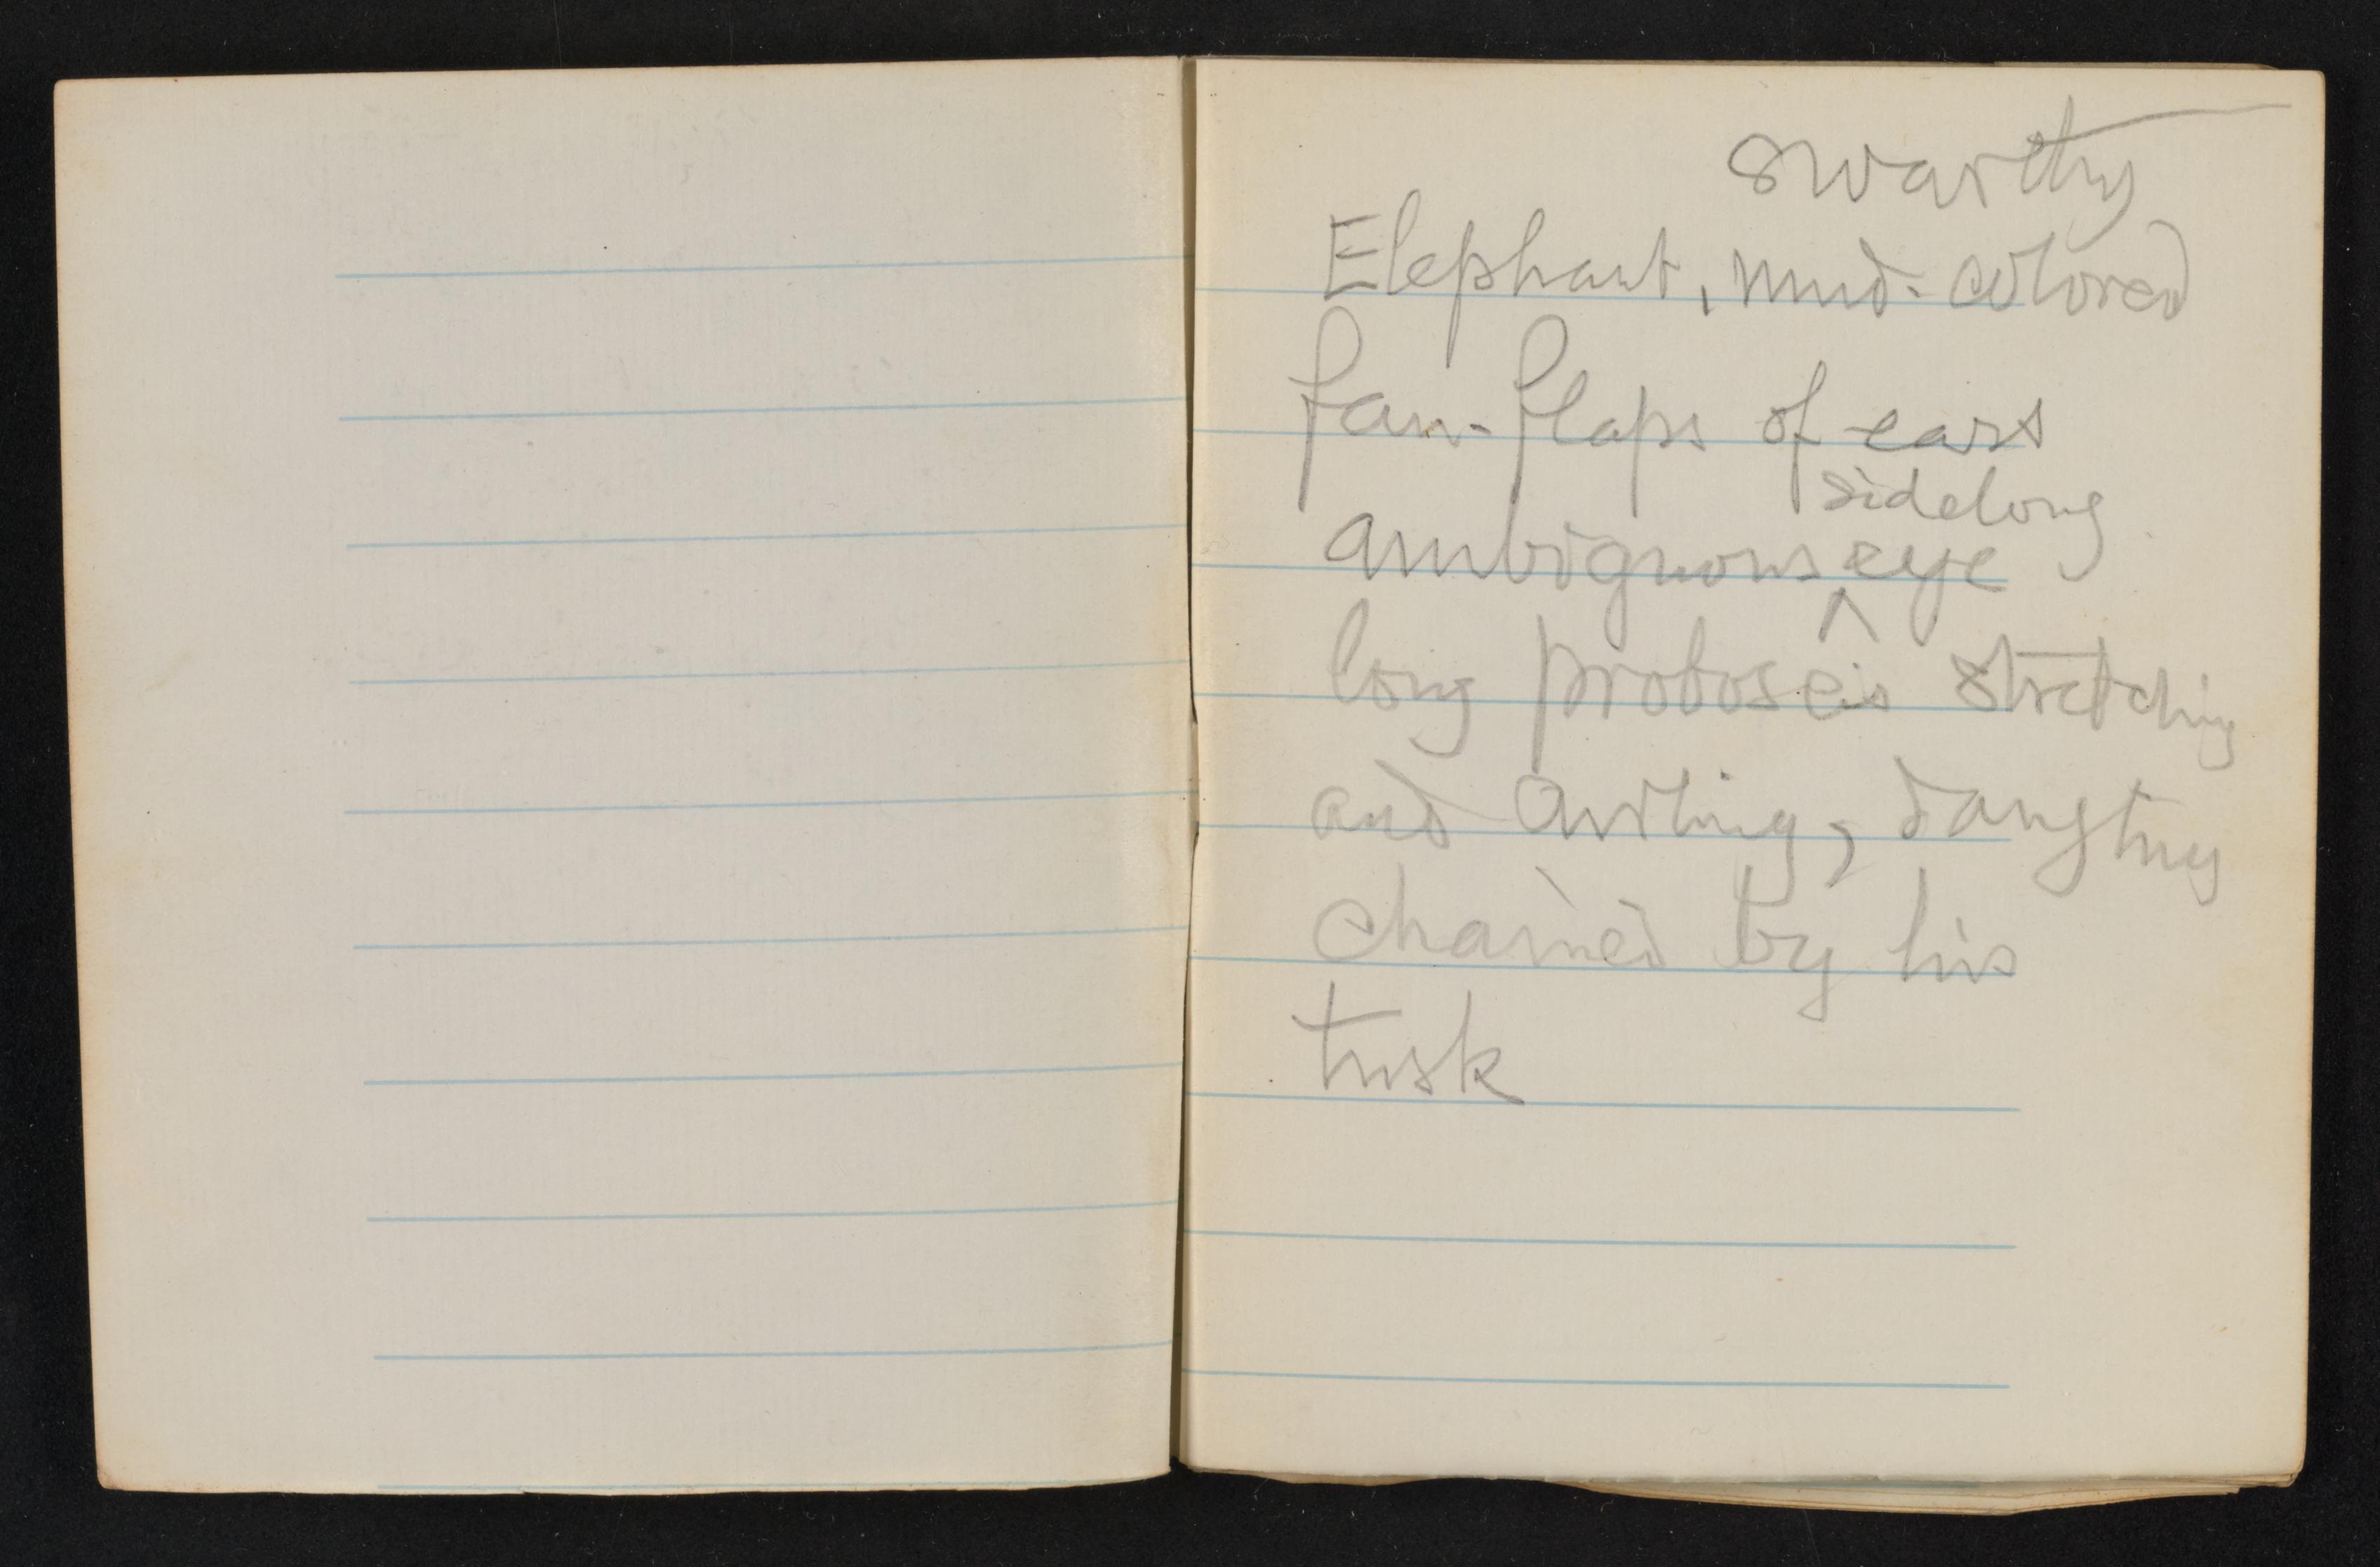 swarthy
Elephant, mud-colored
fan-flaps of ears
sidelong
ambiguous eye
^
long proboscis stretching
and curling,
chained by his
tusk